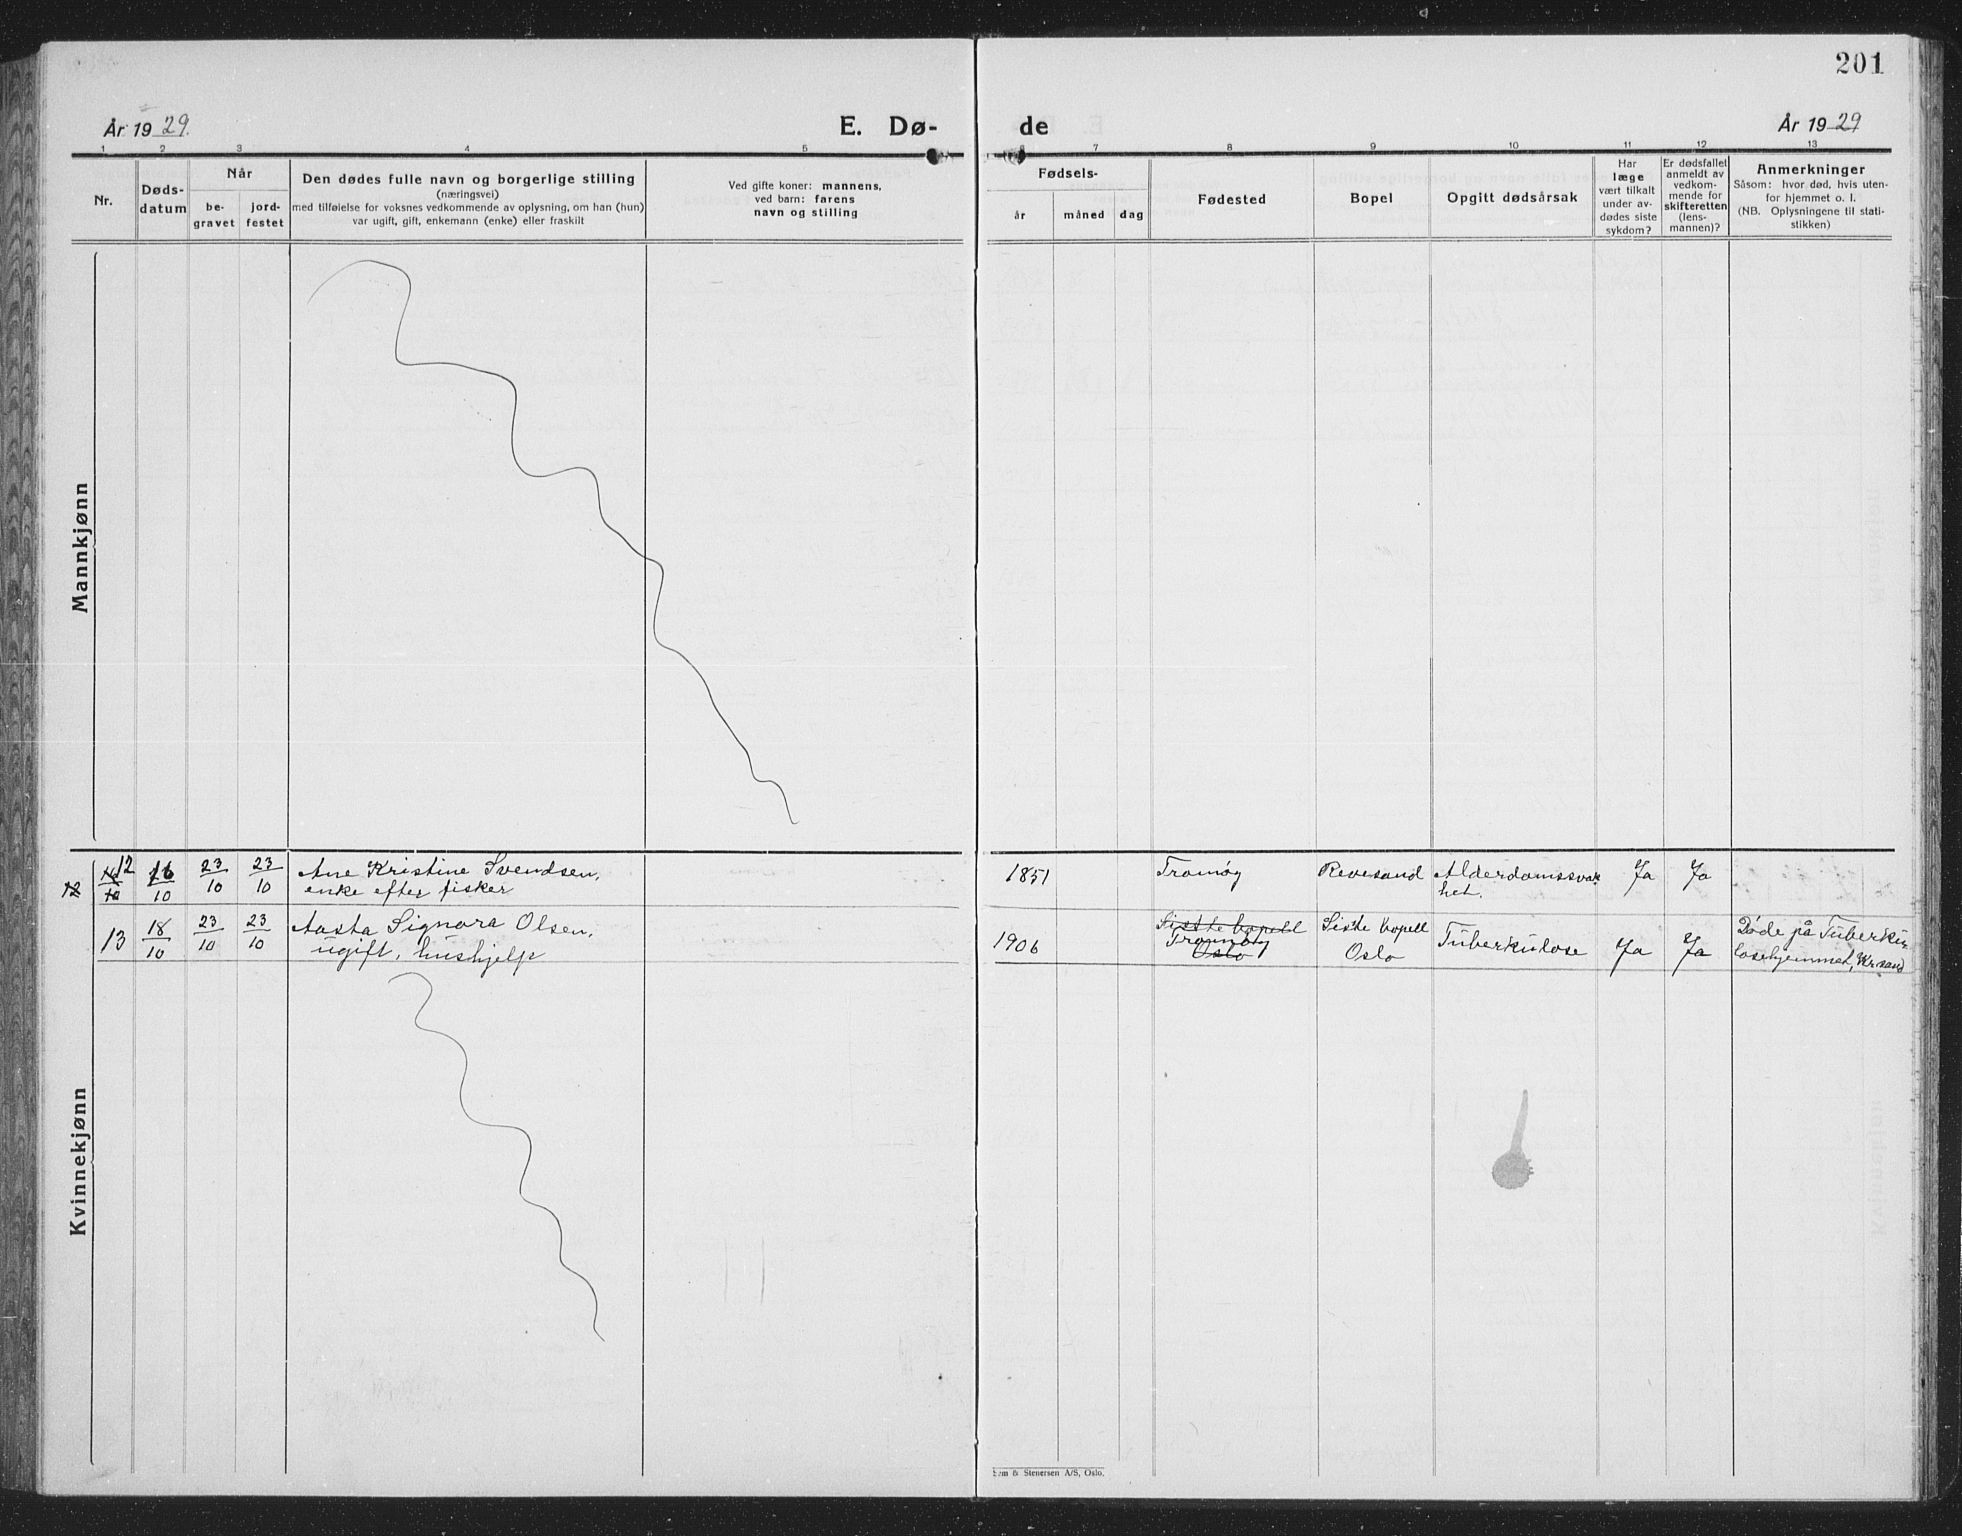 201
År 1929.
E. Dø-
de
År 1929
1 2 3 4 5 7 8 9 10 11 12 13
Nr.
Døds-
datum
Når
be-
gravet
jord-
festet
Den dødes fulle navn og borgerlige stilling
(næringsvei)
med tilføielse for voksnes vedkommende av oplysning, om han (hun)
var ugift, gift, enkemann (enke) eller fraskilt
Ved gifte koner: mannens,
ved barn: farens
navn og stilling
Fødsels-
år
måned
dag
Fødested
Bopel
Opgitt dødsårsak
Har
læge
vært tilkalt
under av-
dødes siste
sykdom?
Er dødsfallet
anmeldt av
vedkom-
mende for
skifteretten
(lens-
mannen)?
Anmerkninger
Såsom: hvor død, hvis uten-
for hjemmet o. l.
(NB. Oplysningene til stati-
stikken)
Mannkjønn
12 16/10 23/10 23/10 Ane Kristine Svendsen, 1851 Tromøy Revesand Alderdomssvak Ja Ja
enke efter fisker het.
13 18/10 23/10 23/10 Aasta Signora Olsen, 1906 Siste bopell Siste bopell Tuberkulose Ja Ja Døde på Tuberku
ugift, hushjelp Tromøy Oslo losehjemmet, Kr.sand
Oslo
Kvinnekjønn
Sem & Stenersen A/S, Oslo.